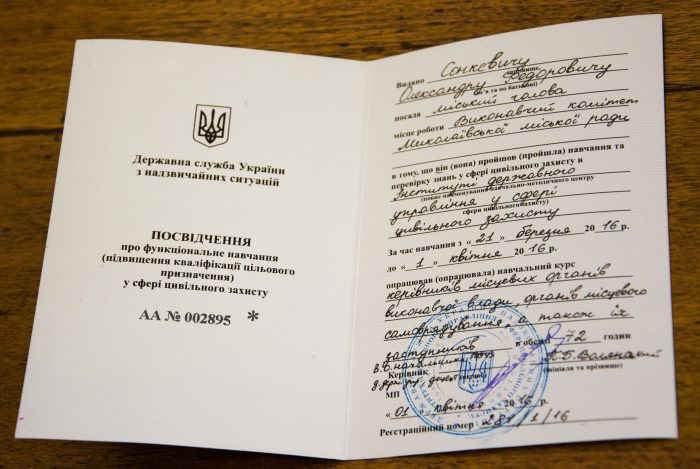 Державна служба України
з надзвичайних ситуацій
ПОСВІДЧЕННЯ
про функціональне навчання
(підвищення кваліфікації цільового
призначення)
у сфері цивільного захисту
АА № 002895 *
Видано Сєнкевичу
(прізвище,
Олександру Федоровичу
ім'я та по батькові)
посада міський голова
місце роботи Виконавчий комітет
Миколаївської міської ради
в тому, що він (вона) пройшов (пройшла) навчання та
перевірку знань у сфері цивільного захисту в
Інституті державного
(повне найменування навчально-методичного центру
управління у сфері
сфери цивільного захисту)
цивільного захисту
За час навчання з « 21 » березня 20 16 р.
до « 1 » квітня 20 16 р.
опрацював (опрацювала) навчальний курс
керівників місцевих органів
виконавчої влади, органів місцевого
самоврядування, а також їх
заступників в обсязі 72 годин
В.о. начальника
Керівник П.Б. Волянський
(ініціали та прізвище)
МП
« 01 » квітня 20 16 р.
Реєстраційний номер 281/1/16